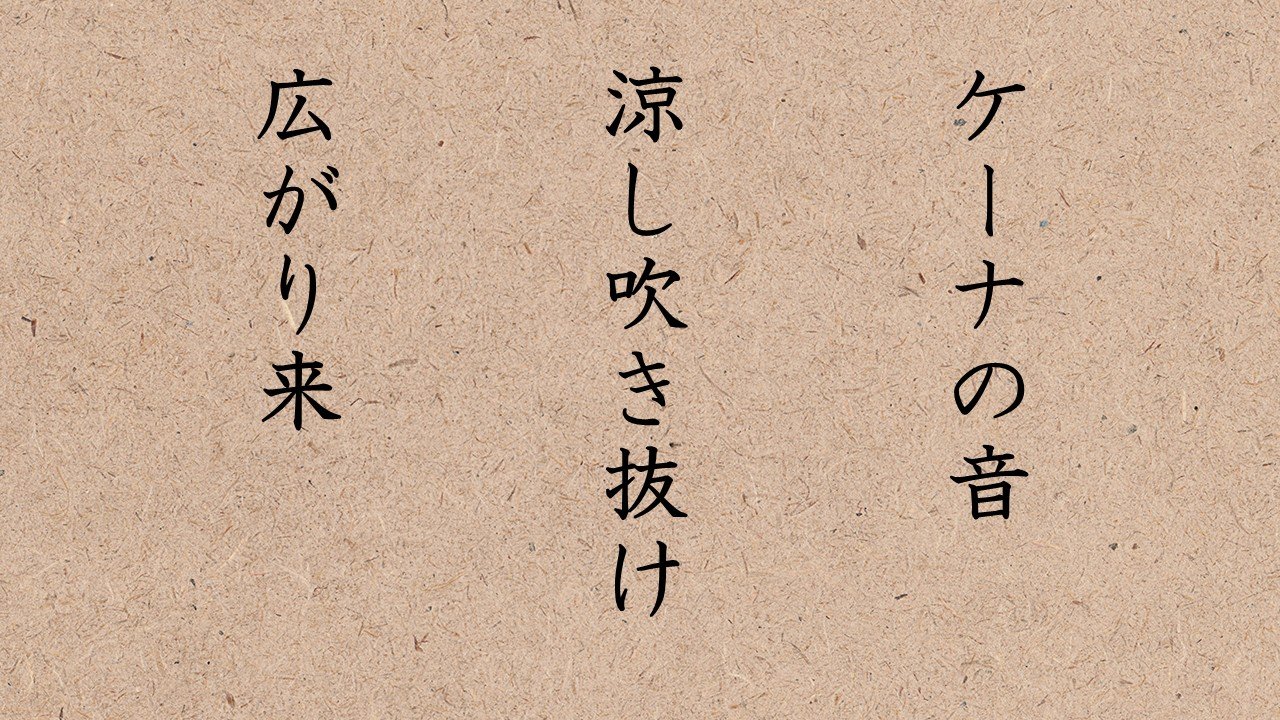 ケーナの音
涼し吹き抜け
広がり来